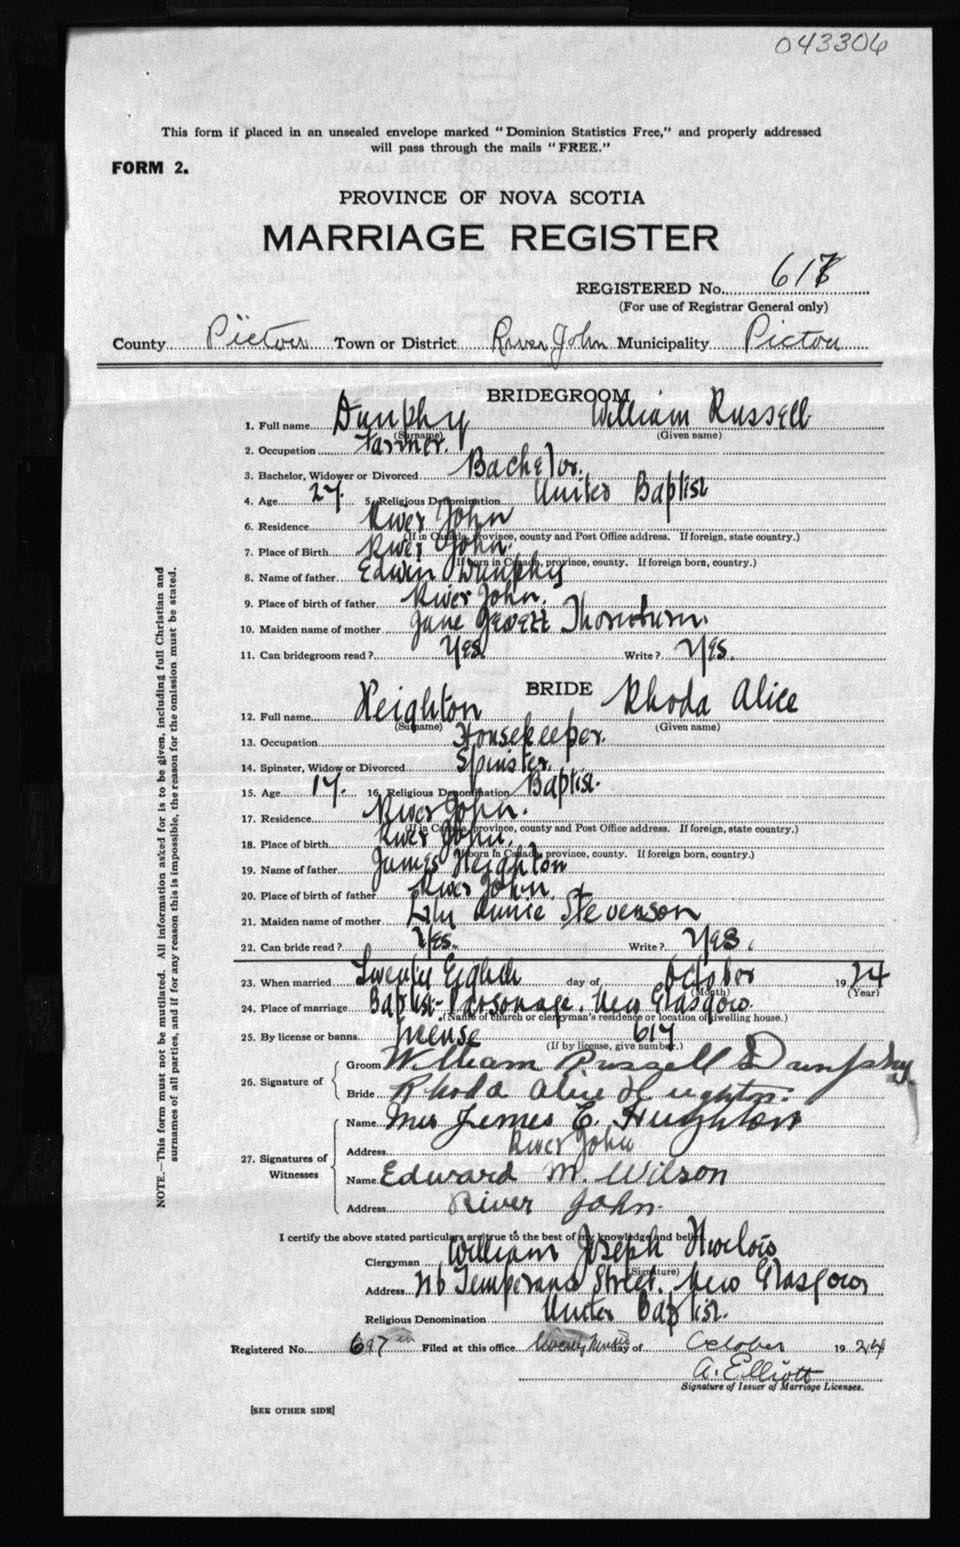 043306
This form if placed in an unsealed envelope marked "Dominion Statistics Free," and properly addressed
will pass through the mails "FREE."
FORM 2.
PROVINCE OF NOVA SCOTIA
MARRIAGE REGISTER
REGISTERED No. 617
(For use of Registrar General only)
County Pictou Town or District River John Municipality Pictou
BRIDEGROOM
1. Full name Dunphy William Russell
(Surname) (Given name)
2. Occupation Farmer.
3. Bachelor, Widower or Divorced Bachelor.
4. Age 27. 5. Religious Denomination United Baptist
6. Residence River John
(If in Canada, province, county and Post Office address. If foreign, state country.)
7. Place of Birth River John.
(If born in Canada, province, county. If foreign born, country.)
8. Name of father Edwin Dunphy
9. Place of birth of father River John.
10. Maiden name of mother Jane
11. Can bridegroom read? Yes Write? Yes.
BRIDE
12. Full name Heighton Rhoda Alice
(Surname) (Given name)
13. Occupation Housekeeper.
14. Spinster, Widow or Divorced Spinster.
15. Age 17. 16. Religious Denomination Baptist.
17. Residence River John.
(If in Canada, province, county and Post Office address. If foreign, state country.)
18. Place of birth River John.
(If born in Canada, province, county. If foreign born, country.)
19. Name of father James Heighton
20. Place of birth of father River John.
21. Maiden name of mother Annie Stevenson
22. Can bride read? Yes. Write? Yes.
23. When married Twenty Eighth day of October 1924
(Month) (Year)
24. Place of marriage Baptist Parsonage. New Glasgow
(Name of church or clergyman's residence or location of dwelling house.)
25. By license or banns License 617
(If by license, give number.)
26. Signature of
Groom William Russell Dunphy
Bride Rhoda Alice Heighton.
27. Signatures of Witnesses
Name Mrs James E. Heighton
Address River John
Name Edward M. Wilson
Address River John.
I certify the above stated particulars are true to the best of my knowledge and belief.
Clergyman William Joseph
(Signature)
Address Street. New Glasgow
Religious Denomination United Baptist.
Registered No. Filed at this office day of October 1924
A. Elliott
Signature of Issuer of Marriage Licenses.
[SEE OTHER SIDE]
NOTE.—This form must not be mutilated. All information asked for is to be given, including full Christian and
surnames of all parties, and if for any reason this is impossible, the reason for the omission must be stated.